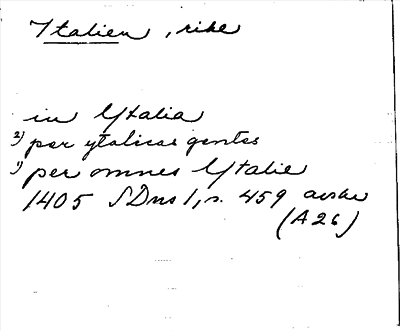 Italien, rike
in Ytalia
2) per ytalicas gentes
1) per omnes Ytalie
1405 SDns 1, s. 459 avskr
(A 26)